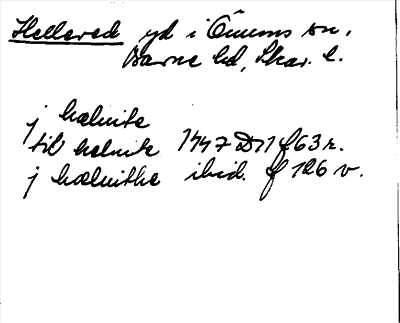 Hellered yd i Önums sn,
Barne hd, Skar. l.
j hælnite
til helnite 1447 D 11 f 63 r.
j hælnithe ibid. f 126 v.